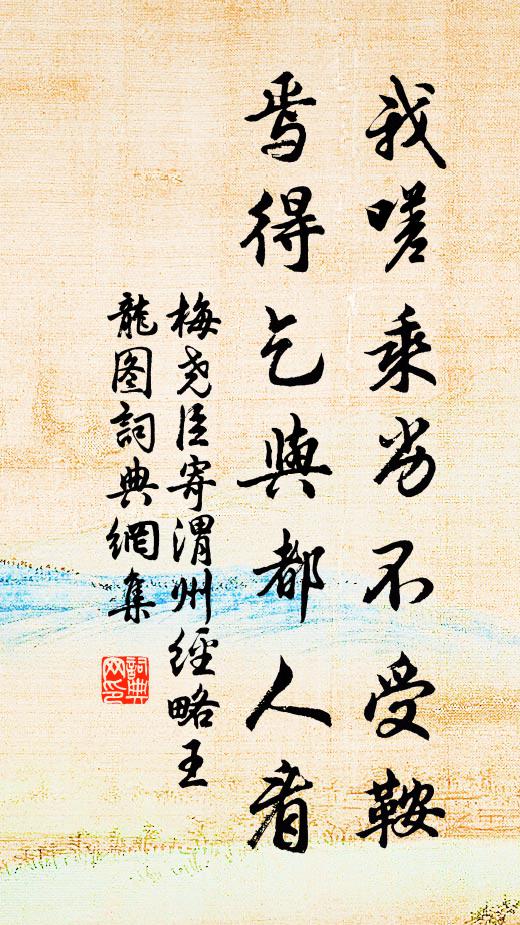 我嗟乘劣不受鞍
焉得乞與都人看
梅尧臣寄渭州經略王
龍图詞典網集
詞典
网印